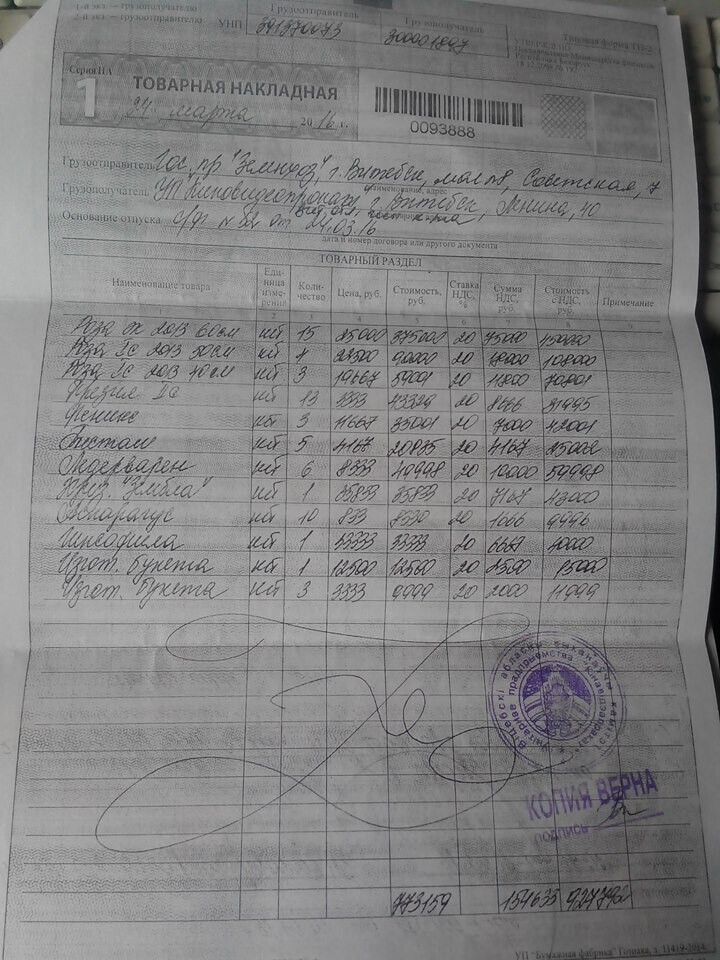 1-й экз. – грузополучателю
2-й экз. – грузоотправителю
Грузоотправитель Грузополучатель
УНП 391370073 300001897
Типовая форма ТН-2
Серия ПА
1
ТОВАРНАЯ НАКЛАДНАЯ
24 марта 2016 г.
0093888
Грузоотправитель Гос. пр. г. Витебск, Советская, 7
наименование, адрес
Грузополучатель УП Киновидеопрокат, г. Витебск, Ленина, 40
Основание отпуска с/ф № 52 от 24.03.16
дата и номер договора или другого документа
ТОВАРНЫЙ РАЗДЕЛ
Наименование товара Единица измерения Количество Цена, руб. Стоимость, руб. Ставка НДС, % Сумма НДС, руб. Стоимость с НДС, руб. Примечание
1 2 3 4 5 6 7 8 9
Роза 2013 60см шт 15 25000 375000 20 75000 450000
Роза 2013 50см шт 4 22500 90000 20 18000 108000
Роза 2013 40см шт 3 19667 59001 20 11800 70801
Фрезия шт 13 3333 43329 20 8666 51995
Феникс шт 3 11667 35001 20 7000 42001
шт 5 4167 20835 20 4167 25002
шт 6 8333 49998 20 10000 59998
"Зембла" шт 1 35833 35833 20 7167 43000
шт 10 833 8330 20 1666 9996
Гипсофила шт 1 33333 33333 20 6667 40000
Изгот. букета шт 1 12500 12500 20 2500 15000
Изгот. букета шт 3 3333 9999 20 2000 11999
КОПИЯ ВЕРНА
ПОДПИСЬ
773159 154633 927792
УП "Бумажная фабрика" Гознака, з. 11419-2014